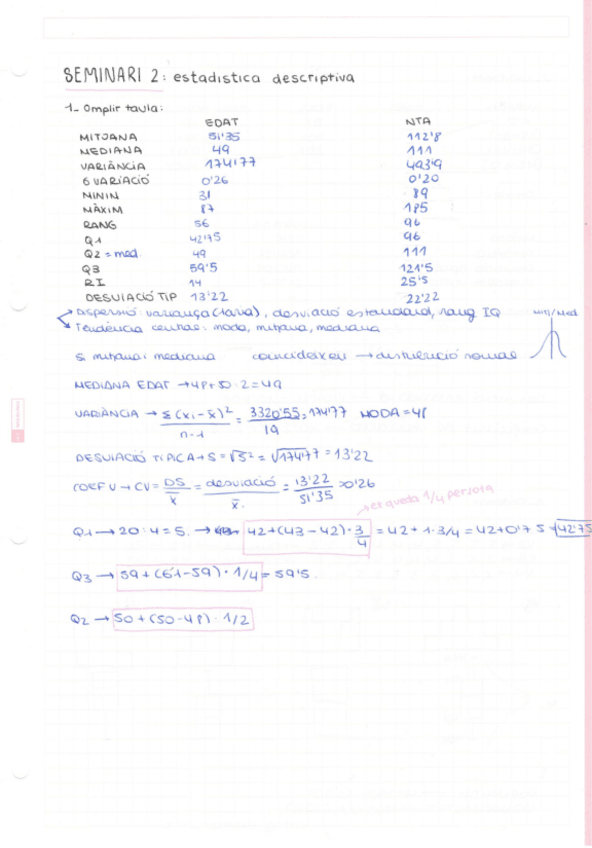 SEMINARI 2: estadistica descriptiva
1- Omplir taula:
EDAT NTA
MITJANA 51'35 112'8
MEDIANA 49 111
VARIÀNCIA 174'77 493'9
6 VARIACIÓ 0'26 0'20
MINIM 31 89
MÀXIM 87 185
RANG 56 96
Q1 42'75 96
Q2 = med. 49 111
Q3 59'5 121'5
RI 14 25'5
DESVIACIÓ TIP 13'22 22'22
Dispersió: variança, desviació estandard, rang IQ
Tendència central: moda, mitjana, mediana
mitj/Med
Si mitjana i mediana coincideixen → distribució normal
MEDIANA EDAT → 48+50:2=49
VARIÀNCIA → Σ(xi-x̄)²/n-1 = 3320'55/19 = 174'77 MODA = 48
DESVIACIÓ TIPICA → S = √S² = √174'77 = 13'22
COEF V → CV = DS/x̄ = desviació/x̄. = 13'22/51'35 = 0'26
→ es queda 1/4 persona
Q1 → 20:4=5. → 42+(43-42)·3/4 = 42+1·3/4 = 42+0'75 = 42'75
Q3 → 59+(61-59)·1/4 = 59'5.
Q2 → 50+(50-48)·1/2